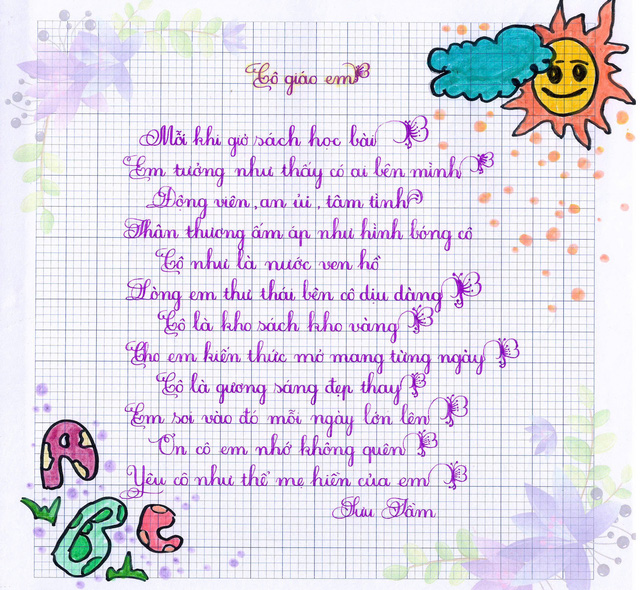 Cô giáo em
Mỗi khi giở sách học bài
Em tưởng như thấy có ai bên mình
Động viên, an ủi, tâm tình
Thân thương ấm áp như hình bóng cô
Cô như là nước ven hồ
Lòng em thư thái bên cô dịu dàng
Cô là kho sách kho vàng
Cho em kiến thức mở mang từng ngày
Cô là gương sáng đẹp thay
Em soi vào đó mỗi ngày lớn lên
Ơn cô em nhớ không quên
Yêu cô như thể mẹ hiền của em
Sưu Tầm
A
B
C